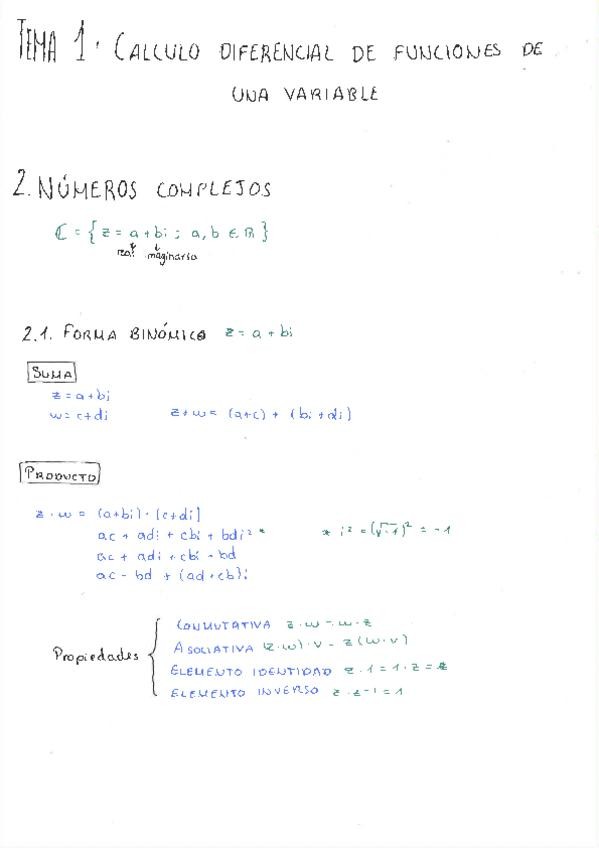 TEMA 1. CALCULO DIFERENCIAL DE FUNCIONES DE
UNA VARIABLE
2. NÚMEROS COMPLEJOS
ℂ = { z = a + bi ; a, b ∈ ℝ }
real imaginario
2.1. FORMA BINÓMICO z = a + bi
SUMA
z = a + bi
w = c + di z + w = (a+c) + (bi + di)
PRODUCTO
z · w = (a+bi) · (c+di)
ac + adi + cbi + bdi² * * i² = (√-1)² = -1
ac + adi + cbi - bd
ac - bd + (ad + cb)i
Propiedades
CONMUTATIVA z · w = w · z
ASOCIATIVA (z·w) · v = z (w·v)
ELEMENTO IDENTIDAD z · 1 = 1 · z = z
ELEMENTO INVERSO z · z⁻¹ = 1